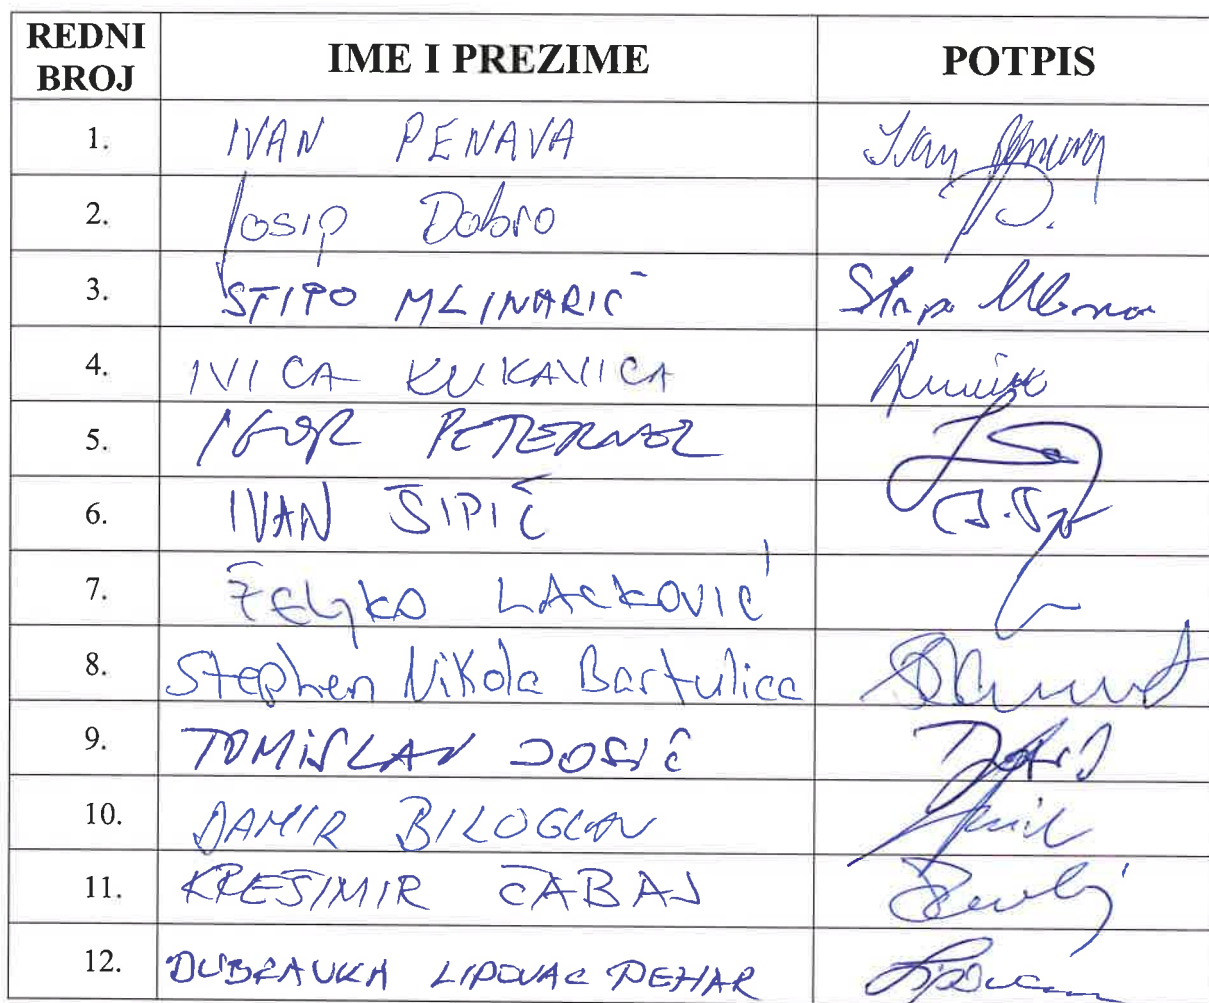 REDNI BROJ IME I PREZIME POTPIS
1. IVAN PENAVA Ivan Penava
2. Josip Dabro
3. STIPO MLINARIĆ Stipo Mlinar
4. IVICA KUKAVICA
5. IGOR PETERNEL
6. IVAN ŠIPIĆ
7. ŽELJKO LACKOVIĆ
8. Stephen Nikola Bartulica
9. TOMISLAV JOSIĆ
10. DAMIR BILOGLAV
11. KREŠIMIR ČABAJ
12. DUBRAVKA LIPOVAC PEHAR